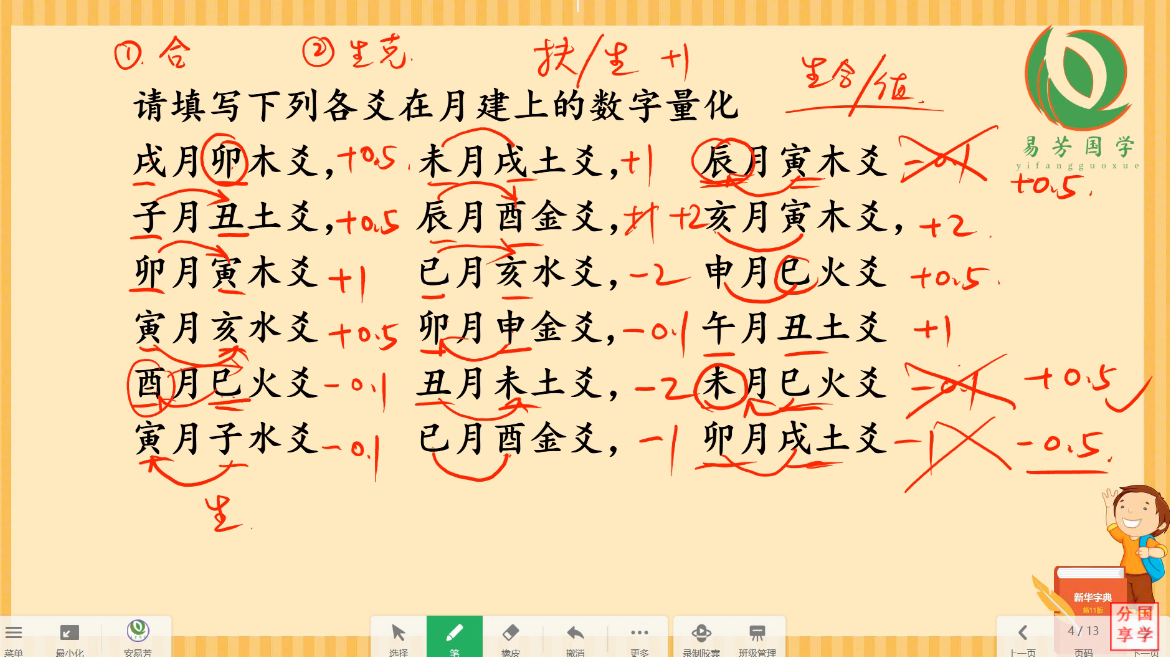 ① 合 ② 生克. 扶/生 +1 生合/值.
请填写下列各爻在月建上的数字量化
易芳国学
yifangguoxue
戌月卯木爻, +0.5. 未月戌土爻, +1 辰月寅木爻 -0.1 +0.5.
子月丑土爻, +0.5 辰月酉金爻, +1 +2 亥月寅木爻, +2.
卯月寅木爻 +1 巳月亥水爻, -2 申月巳火爻 +0.5.
寅月亥水爻 +0.5 卯月申金爻, -0.1 午月丑土爻 +1
酉月巳火爻 -0.1 丑月未土爻, -2 未月巳火爻 -0.1 +0.5
寅月子水爻 -0.1 巳月酉金爻, -1 卯月戌土爻 -1 -0.5.
生.
新华字典
第11版
分国
享学
菜单 最小化 安易芳 选择 笔 橡皮 撤消 更多 录制胶囊 班级管理 上一页 4 / 13 页码 下一页